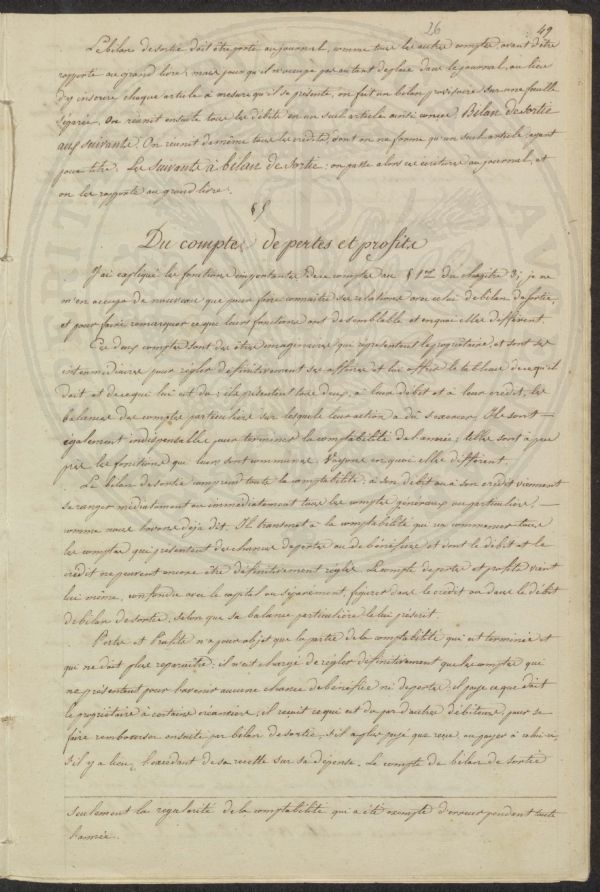 26 49
Le bilan de sortie doit être porté au journal, comme tous les autres comptes, avant d'être
rapporté au grand livre; mais pour qu'il n'occupe pas autant de place dans le journal, au lieu
d'y inscrire chaque article à mesure qu'il se présente, on fait un bilan provisoire sur une feuille
séparée. On réunit ensuite tous les débits en un seul article ainsi conçu Bilan de Sortie
aux suivants. On réunit de même tous les crédits dont on ne forme qu'un seul article, ayant
pour titre. Les Suivants à bilan de Sortie: on passe alors ces écritures au journal, et
on les rapporte au grand livre.
§ 5
Du compte de pertes et profits
J'ai expliqué les fonctions importantes de ce compte au § 12 du chapitre 3; je ne
m'en occupe de nouveau que pour faire connaître ses relations avec celui de bilan de sortie,
et pour faire remarquer ce que leurs fonctions ont de semblable et en quoi elles diffèrent.
Ces deux comptes sont des êtres imaginaires qui représentent le propriétaire, et sont ses
intermédiaires pour régler définitivement ses affaires et lui offrir le tableau de ce qu'il
doit et de ce qui lui est dû; ils présentent tous deux, à leur débit et à leur crédit, les
balances des comptes particuliers sur lesquels leur action a dû s'exercer. Ils sont
également indispensables pour terminer la comptabilité de l'année; telles sont à peu
près les fonctions qui leurs sont communes. Voyons en quoi elles diffèrent.
Le bilan de sortie comprend toute la comptabilité; à son débit ou à son crédit viennent
se ranger médiatement ou immédiatement tous les comptes généraux ou particuliers,
comme nous l'avons déjà dit. Il transmet à la comptabilité qui va commencer tous
les comptes qui présentent des chances de pertes ou de bénéfices et dont le débit et le
crédit ne peuvent encore être définitivement réglés. Le compte de pertes et profits vient
lui même, confondu avec le capital ou séparément, figurer dans le crédit ou dans le débit
de bilan de sortie, selon que sa balance particulière le lui prescrit.
Pertes et Profits n'a pour objet que la partie de la comptabilité qui est terminée et
qui ne doit plus reparaître: il n'est chargé de régler définitivement que les comptes qui
ne présentent pour l'avenir aucune chance de bénéfice ni de pertes. Il paye ce que doit
le propriétaire à certains créanciers; il reçoit ce qui est dû par d'autres débiteurs, pour se
faire rembourser ensuite par bilan de sortie, s'il a plus payé que reçu, ou payer à celui-ci,
s'il y a lieu, l'excédant de sa recette sur sa dépense. Le compte de bilan de sortie
seulement la regularité de la comptabilité qui a été exempte d'erreur pendant toute
l'année.